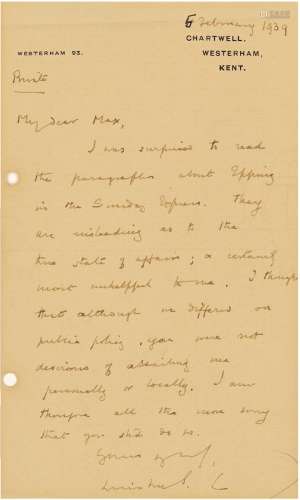 5 February 1939
CHARTWELL,
WESTERHAM 93. WESTERHAM,
KENT.
Private
My dear Max,
I was surprised to read
the paragraphs about Epping
in the Sunday Express. They
are misleading as to the
true state of affairs; & certainly
most unhelpful to me. I thought
that although we differed on
public policy, you were not
desirous of assailing me
personally or locally. I am
therefore all the more sorry
that you shd do so.
Yours
Winston S. C